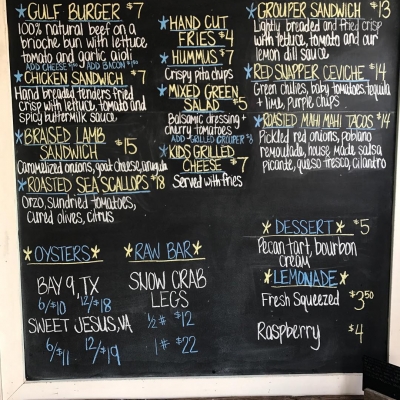 *GULF BURGER $7
100% natural beef on a
brioche bun with lettuce
tomato and garlic aioli
ADD CHEESE ADD BACON
*CHICKEN SANDWICH $7
Hand breaded tenders fried
crisp with lettuce, tomato and
spicy buttermilk sauce
*BRAISED LAMB
SANDWICH $15
Caramelized onions, goat cheese, arugula
*ROASTED SEA SCALLOPS $18
Orzo, sundried tomatoes,
cured olives, citrus
*HAND CUT
FRIES $4
*HUMMUS $7
Crispy pita chips
*MIXED GREEN
SALAD $5
Balsamic dressing +
cherry tomatoes
ADD GRILLED GROUPER $8
*KIDS GRILLED
CHEESE $7
Served with fries
*GROUPER SANDWICH $13
Lightly breaded and fried crisp
with lettuce, tomato and our
lemon dill sauce
*RED SNAPPER CEVICHE $14
Green chilies, baby tomatoes, tequila
+ lime, purple chips
*ROASTED MAHI MAHI TACOS $14
Pickled red onions, poblano
remoulade, house made salsa
picante, queso fresco, cilantro
*OYSTERS*
BAY 9, TX
6/$10 12/$18
SWEET JESUS, VA
6/$11 12/$19
*RAW BAR*
SNOW CRAB
LEGS
½# $12
1# $22
*DESSERT* $5
Pecan tart, bourbon
cream
*LEMONADE*
Fresh Squeezed $3.50
Raspberry $4